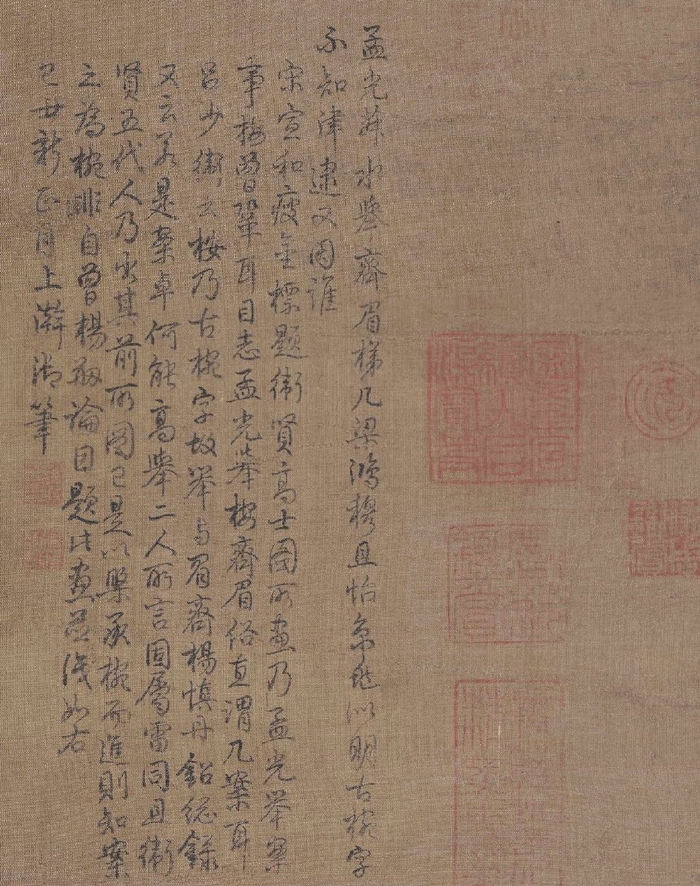 孟光舉齊眉梯几梁鴻穆且怡以明古椀字
不知津逮又因誰
宋宣和瘦金標題衛賢高士圖所畫乃孟光舉案
事按曾鞏耳目志孟光舉桉齊眉俗直謂几案耳
呂少衛云桉乃古椀字故舉与眉齊楊慎丹鉛總錄
又云若是案卓何能高舉二人所言固屬雷同且衛
賢五代人乃其前所圖已是以槃承椀而進則知案
之為椀非自曾楊論因題此畫並識如右
己丑新正月上澣御筆